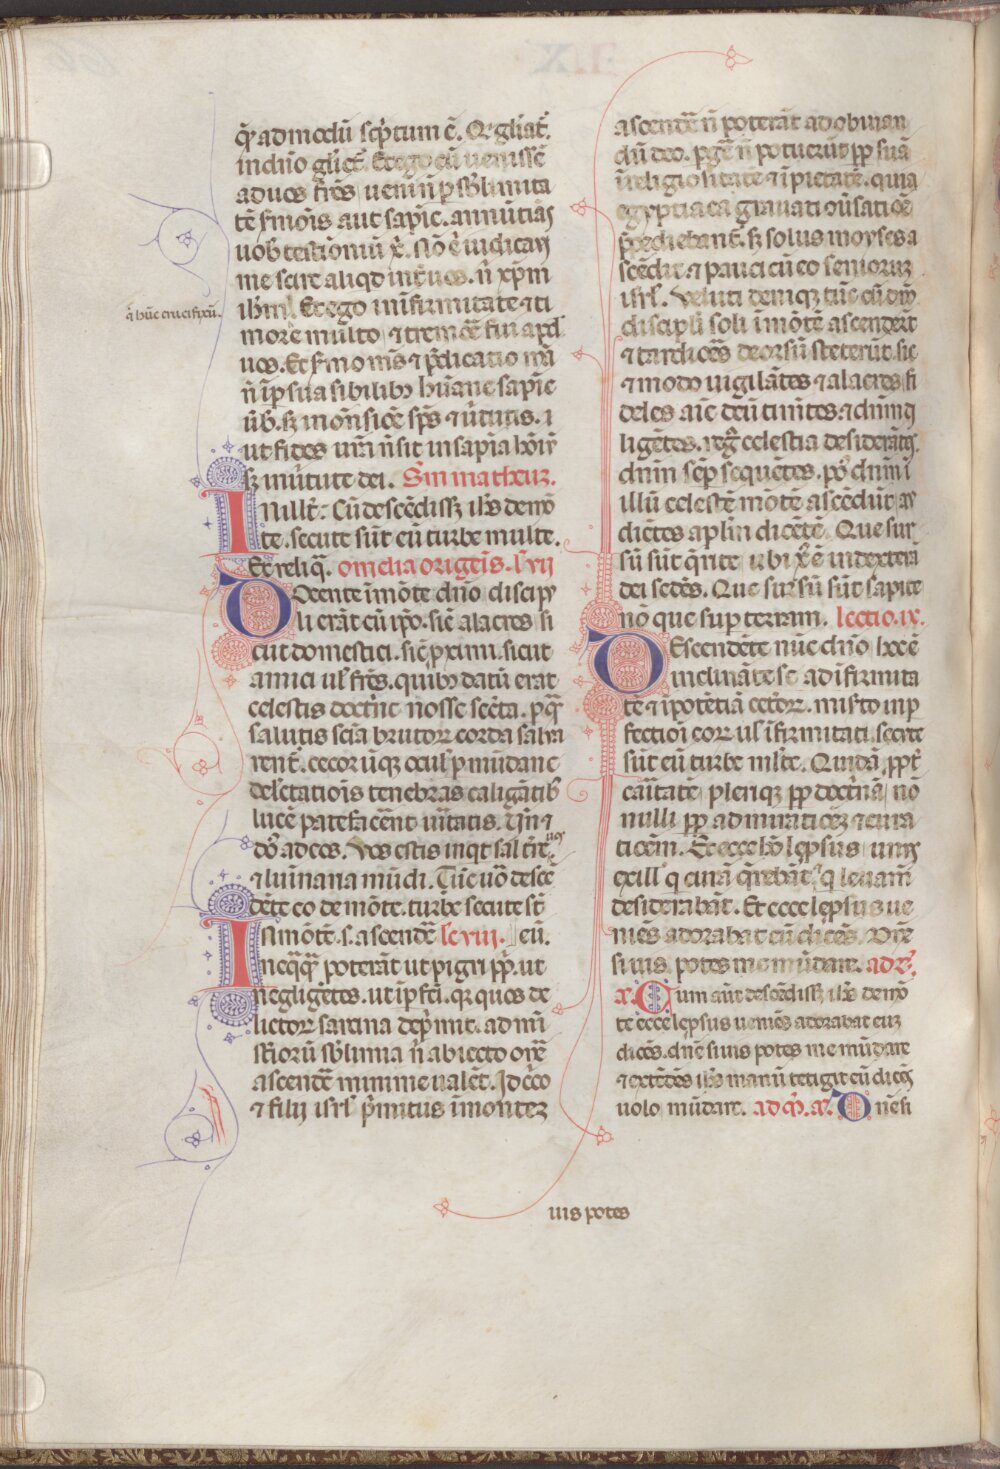 q̄ ad modū sc̄ptum ē. Q̄ gl̄iat᷑.
in dn̄o gl̄iet᷑. Et ego cū uenissē
ad uos fr̄es ueni n̄ p sb̄limita
tē s̄mōis aut sapīe. annūtiās
uob testimōiū x̄. Nō ē iudicaui
me scire aliqd int̄ uos. n̄ xp̄m
ih̄m. Et ego in īfirmitate ⁊ ti
q̄ hūc crucifixū.
more multo ⁊ tremoē fui apd̄
uos. Et s̄mo m̄s ⁊ p̄dicatio m̄a
n̄ ī p̄suasibilibꝫ hūane sapīe
ūb. sꝫ in on̄sioē sp̄s ⁊ ūtutis.
ut fides ur̄a n̄ sit in sapīa hōiū
sꝫ in ūtute dei. Sm̄ matheuꝫ.
In illt̄: Cū descēdissꝫ ih̄s de mō
te. secute sūt eū turbe multe.
Et reliq̄. omelia origeīs. l. vii
Docente ī mōte dn̄o discip
li erāt cū ip̄o. sic̄ alacres si
cut domestici. sic̄ p̄ximi. sicut
amici ul̄ fr̄es. quibꝫ datū erat
celestis doct̄ne nosse sec̄ta. p q̄
salutis scīa brutoꝝ corda salua
rent᷑. cecoꝝ ūqꝫ oculi p̄ mūdane
delectatiōis tenebras caligātibꝰ
lucē patefacēent uītatis. Vn̄ ⁊
dō ad eos. Vos estis inqt sal t̄re
⁊ lumīana mūdi. Tūc uō desce
dēte eo de mōte. turbe secute st̄
In mōtē. s. ascende᷑ lc̄ viii. eū.
neq̄q̄ poterāt ut pigri pp̄. ut
negligētes. ut ip̄fc̄i. qꝫ quos de
lictoꝝ sarcina dep̄mit. ad mī
st̄ioꝝ sb̄limia n̄ abiecto on̄e
ascende᷑ minime ualēt. Id cc̄o
⁊ filij isrl̄ p̄mitus ī monteꝫ
ascende᷑ n̄ poterāt ad obuian
dū deo. p̄gē n̄ potuerūt pp̄ suā
īreligiositatē ⁊ īpietatē. quia
egyptiaca grauati ōūsatioē
p̄pediebant᷑. sꝫ solus moyses a
scēdit. ⁊ pauci cū eo senioruꝫ
isrl̄. Veluti deniqꝫ tūc cū dn̄o
discipl̄i soli ī mōtē ascendert̄
⁊ tardioēs deorsū steterūt. sic
⁊ modo uigilātes ⁊ alacres fi
deles aīe deū timētes. ⁊ dn̄m
ligētes. celestia desiderātes.
dn̄m sēp sequētes. pꝰ dn̄m ī
illū celestē mōtē ascēdūt
dictes aplm̄ dicētē. Que sur
sū sūt q̄rite ubi x̄ ē in dextera
dei sedēs. Que sursū sūt sapite
nō que sup terram. lectio. ix.
Descendēte nūc dn̄o hoc ē
inclināte se ad īfirmita
tē ⁊ īpotētiā cetōꝝ. misto inp
fectioī eoꝝ ul̄ īfirmitati. secute
sūt eū turbe ml̄te. Quidā pp̄t
caītatē plerıqꝫ pp̄ doct̄nā nō
nulli pp̄ admiratioēꝫ ⁊ cura
tioēm. Et ecce hō lep̄sus unus
ex ill̓ q curā q̄rebāt. q leuam̄
desiderabāt. Et ecce lep̄sus ue
niēs adorabat eū dicēs. Dn̄e
si uis potes me mūdare. ad bn̄.
a. Cum aūt descēdissꝫ ih̄s de mō
te ecce lep̄sus ueniēs adorabat euꝫ
dicēs. dn̄e si uis potes me mūdare
⁊ extēdēs ih̄s manū tetigit eū dicēs
uolo mūdare. ad m̄. a. Dn̄e si
uis potes